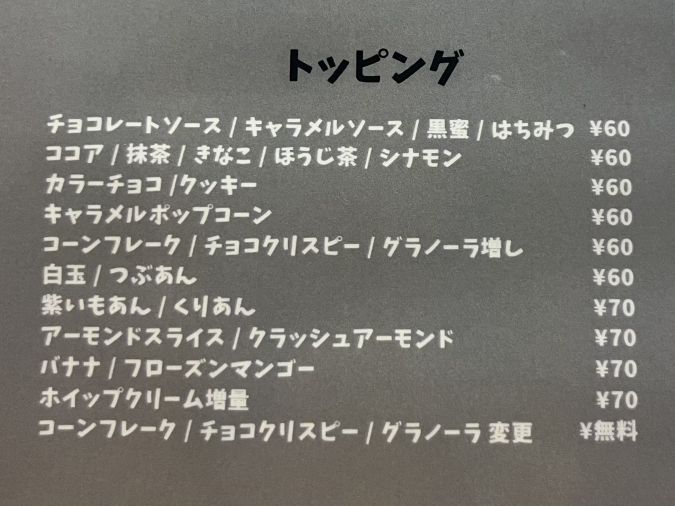 トッピング
チョコレートソース / キャラメルソース / 黒蜜 / はちみつ ¥60
ココア / 抹茶 / きなこ / ほうじ茶 / シナモン ¥60
カラーチョコ /クッキー ¥60
キャラメルポップコーン ¥60
コーンフレーク / チョコクリスピー / グラノーラ増し ¥60
白玉 / つぶあん ¥60
紫いもあん / くりあん ¥70
アーモンドスライス / クラッシュアーモンド ¥70
バナナ / フローズンマンゴー ¥70
ホイップクリーム増量 ¥70
コーンフレーク / チョコクリスピー / グラノーラ 変更 ¥無料